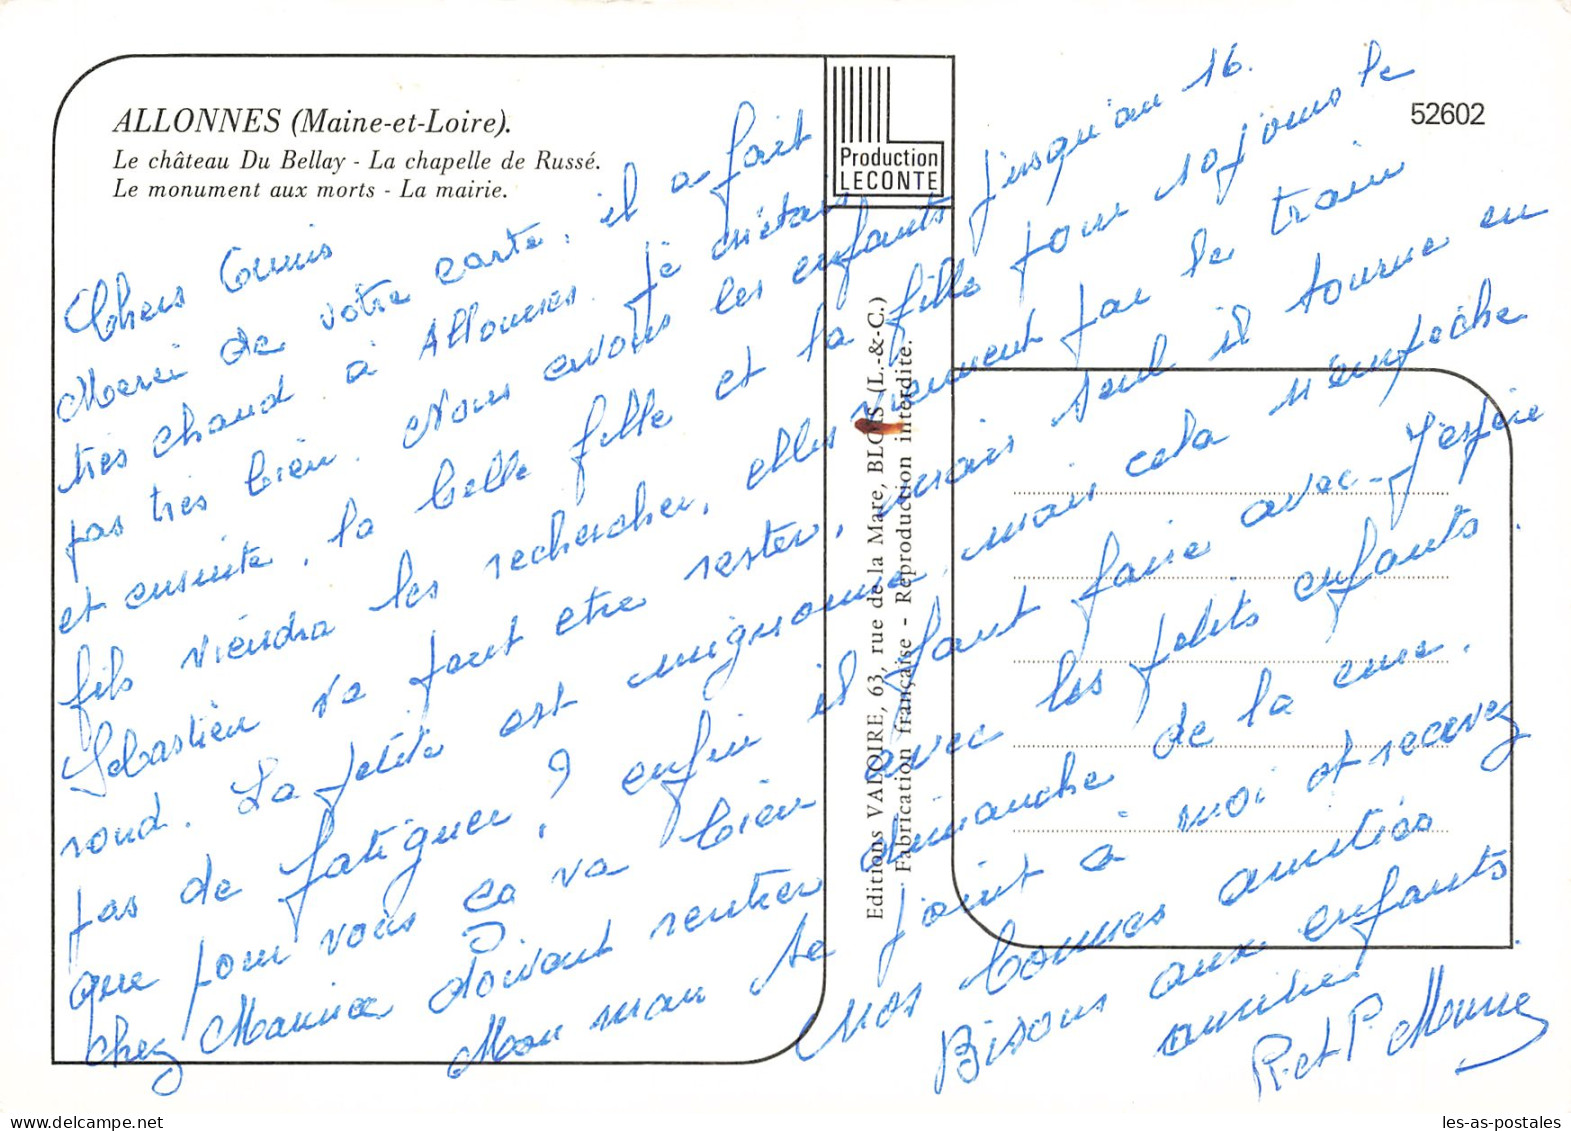 ALLONNES (Maine-et-Loire).
Le château Du Bellay - La chapelle de Russé.
Le monument aux morts - La mairie.
Production
LECONTE
52602
Editions VALOIRE, 63, rue de la Mare, BLOIS (L.-&-C.)
Fabrication française - Reproduction interdite.
Chers Amis
Merci de votre carte, il a fait
très chaud à Allonnes. je n'étais
pas très bien. Nous avons les enfants jusqu'au 16.
et ensuite, la belle fille et la fille pour 10 jours le
fils viendra les rechercher, elles viennent par le train
Sébastien va peut etre rester, mais seul il tourne en
rond. La petite est mignonne, mais cela n'empêche
pas de fatiguer ? enfin il faut faire avec - J'espère
que pour vous ça va bien avec les petits enfants.
chez Maurice doivent rentrer dimanche de la cure.
Mon mari se joint à moi et recevez
Nos bonnes amitiés
Bisous aux enfants
R. et P.
les-as-postales